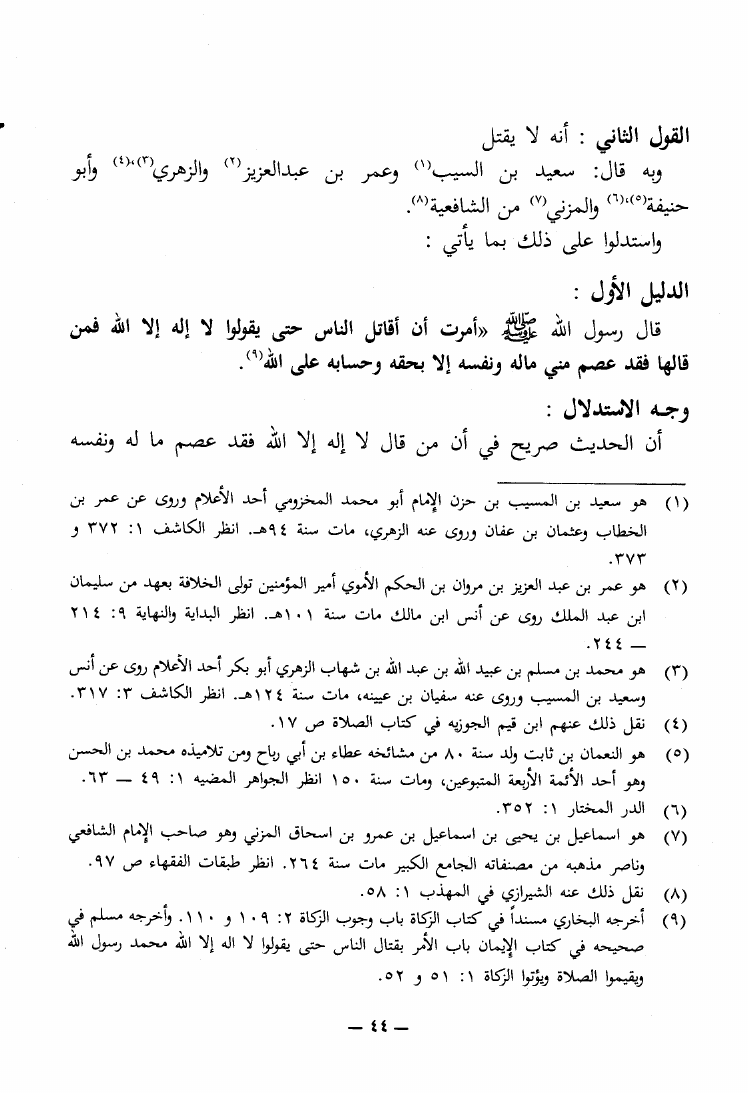 القول الثاني : أنه لا يقتل
وبه قال: سعيد بن السيب(١) وعمر بن عبدالعزيز(٢) والزهري(٣)،(٤) وأبو
حنيفة(٥)،(٦) والمزني(٧) من الشافعية(٨).
واستدلوا على ذلك بما يأتي :
الدليل الأول :
قال رسول الله ﷺ «أمرت أن أقاتل الناس حتى يقولوا لا إله إلا الله فمن
قالها فقد عصم مني ماله ونفسه إلا بحقه وحسابه على الله(٩).
وجه الاستدلال :
أن الحديث صريح في أن من قال لا إله إلا الله فقد عصم ما له ونفسه
(١) هو سعيد بن المسيب بن حزن الإمام أبو محمد المخزومي أحد الأعلام وروى عن عمر بن
الخطاب وعثمان بن عفان وروى عنه الزهري، مات سنة ٩٤هـ. انظر الكاشف ١: ٣٧٢ و
٣٧٣.
(٢) هو عمر بن عبد العزيز بن مروان بن الحكم الأموي أمير المؤمنين تولى الخلافة بعهد من سليمان
ابن عبد الملك روى عن أنس ابن مالك مات سنة ١٠١هـ. انظر البداية والنهاية ٩: ٢١٤
— ٢٤٤.
(٣) هو محمد بن مسلم بن عبيد الله بن عبد الله بن شهاب الزهري أبو بكر أحد الأعلام روى عن أنس
وسعيد بن المسيب وروى عنه سفيان بن عيينه، مات سنة ١٢٤هـ. انظر الكاشف ٣: ٣١٧.
(٤) نقل ذلك عنهم ابن قيم الجوزيه في كتاب الصلاة ص ١٧.
(٥) هو النعمان بن ثابت ولد سنة ٨٠ من مشائخه عطاء بن أبي رباح ومن تلاميذه محمد بن الحسن
وهو أحد الأئمة الأربعة المتبوعين، ومات سنة ١٥٠ انظر الجواهر المضيه ١: ٤٩ — ٦٣.
(٦) الدر المختار ١: ٣٥٢.
(٧) هو اسماعيل بن يحيى بن اسماعيل بن عمرو بن اسحاق المزني وهو صاحب الإمام الشافعي
وناصر مذهبه من مصنفاته الجامع الكبير مات سنة ٢٦٤. انظر طبقات الفقهاء ص ٩٧.
(٨) نقل ذلك عنه الشيرازي في المهذب ١: ٥٨.
(٩) أخرجه البخاري مسنداً في كتاب الزكاة باب وجوب الزكاة ٢: ١٠٩ و ١١٠. وأخرجه مسلم في
صحيحه في كتاب الإيمان باب الأمر بقتال الناس حتى يقولوا لا اله إلا الله محمد رسول الله
ويقيموا الصلاة ويؤتوا الزكاة ١: ٥١ و ٥٢.
— ٤٤ —